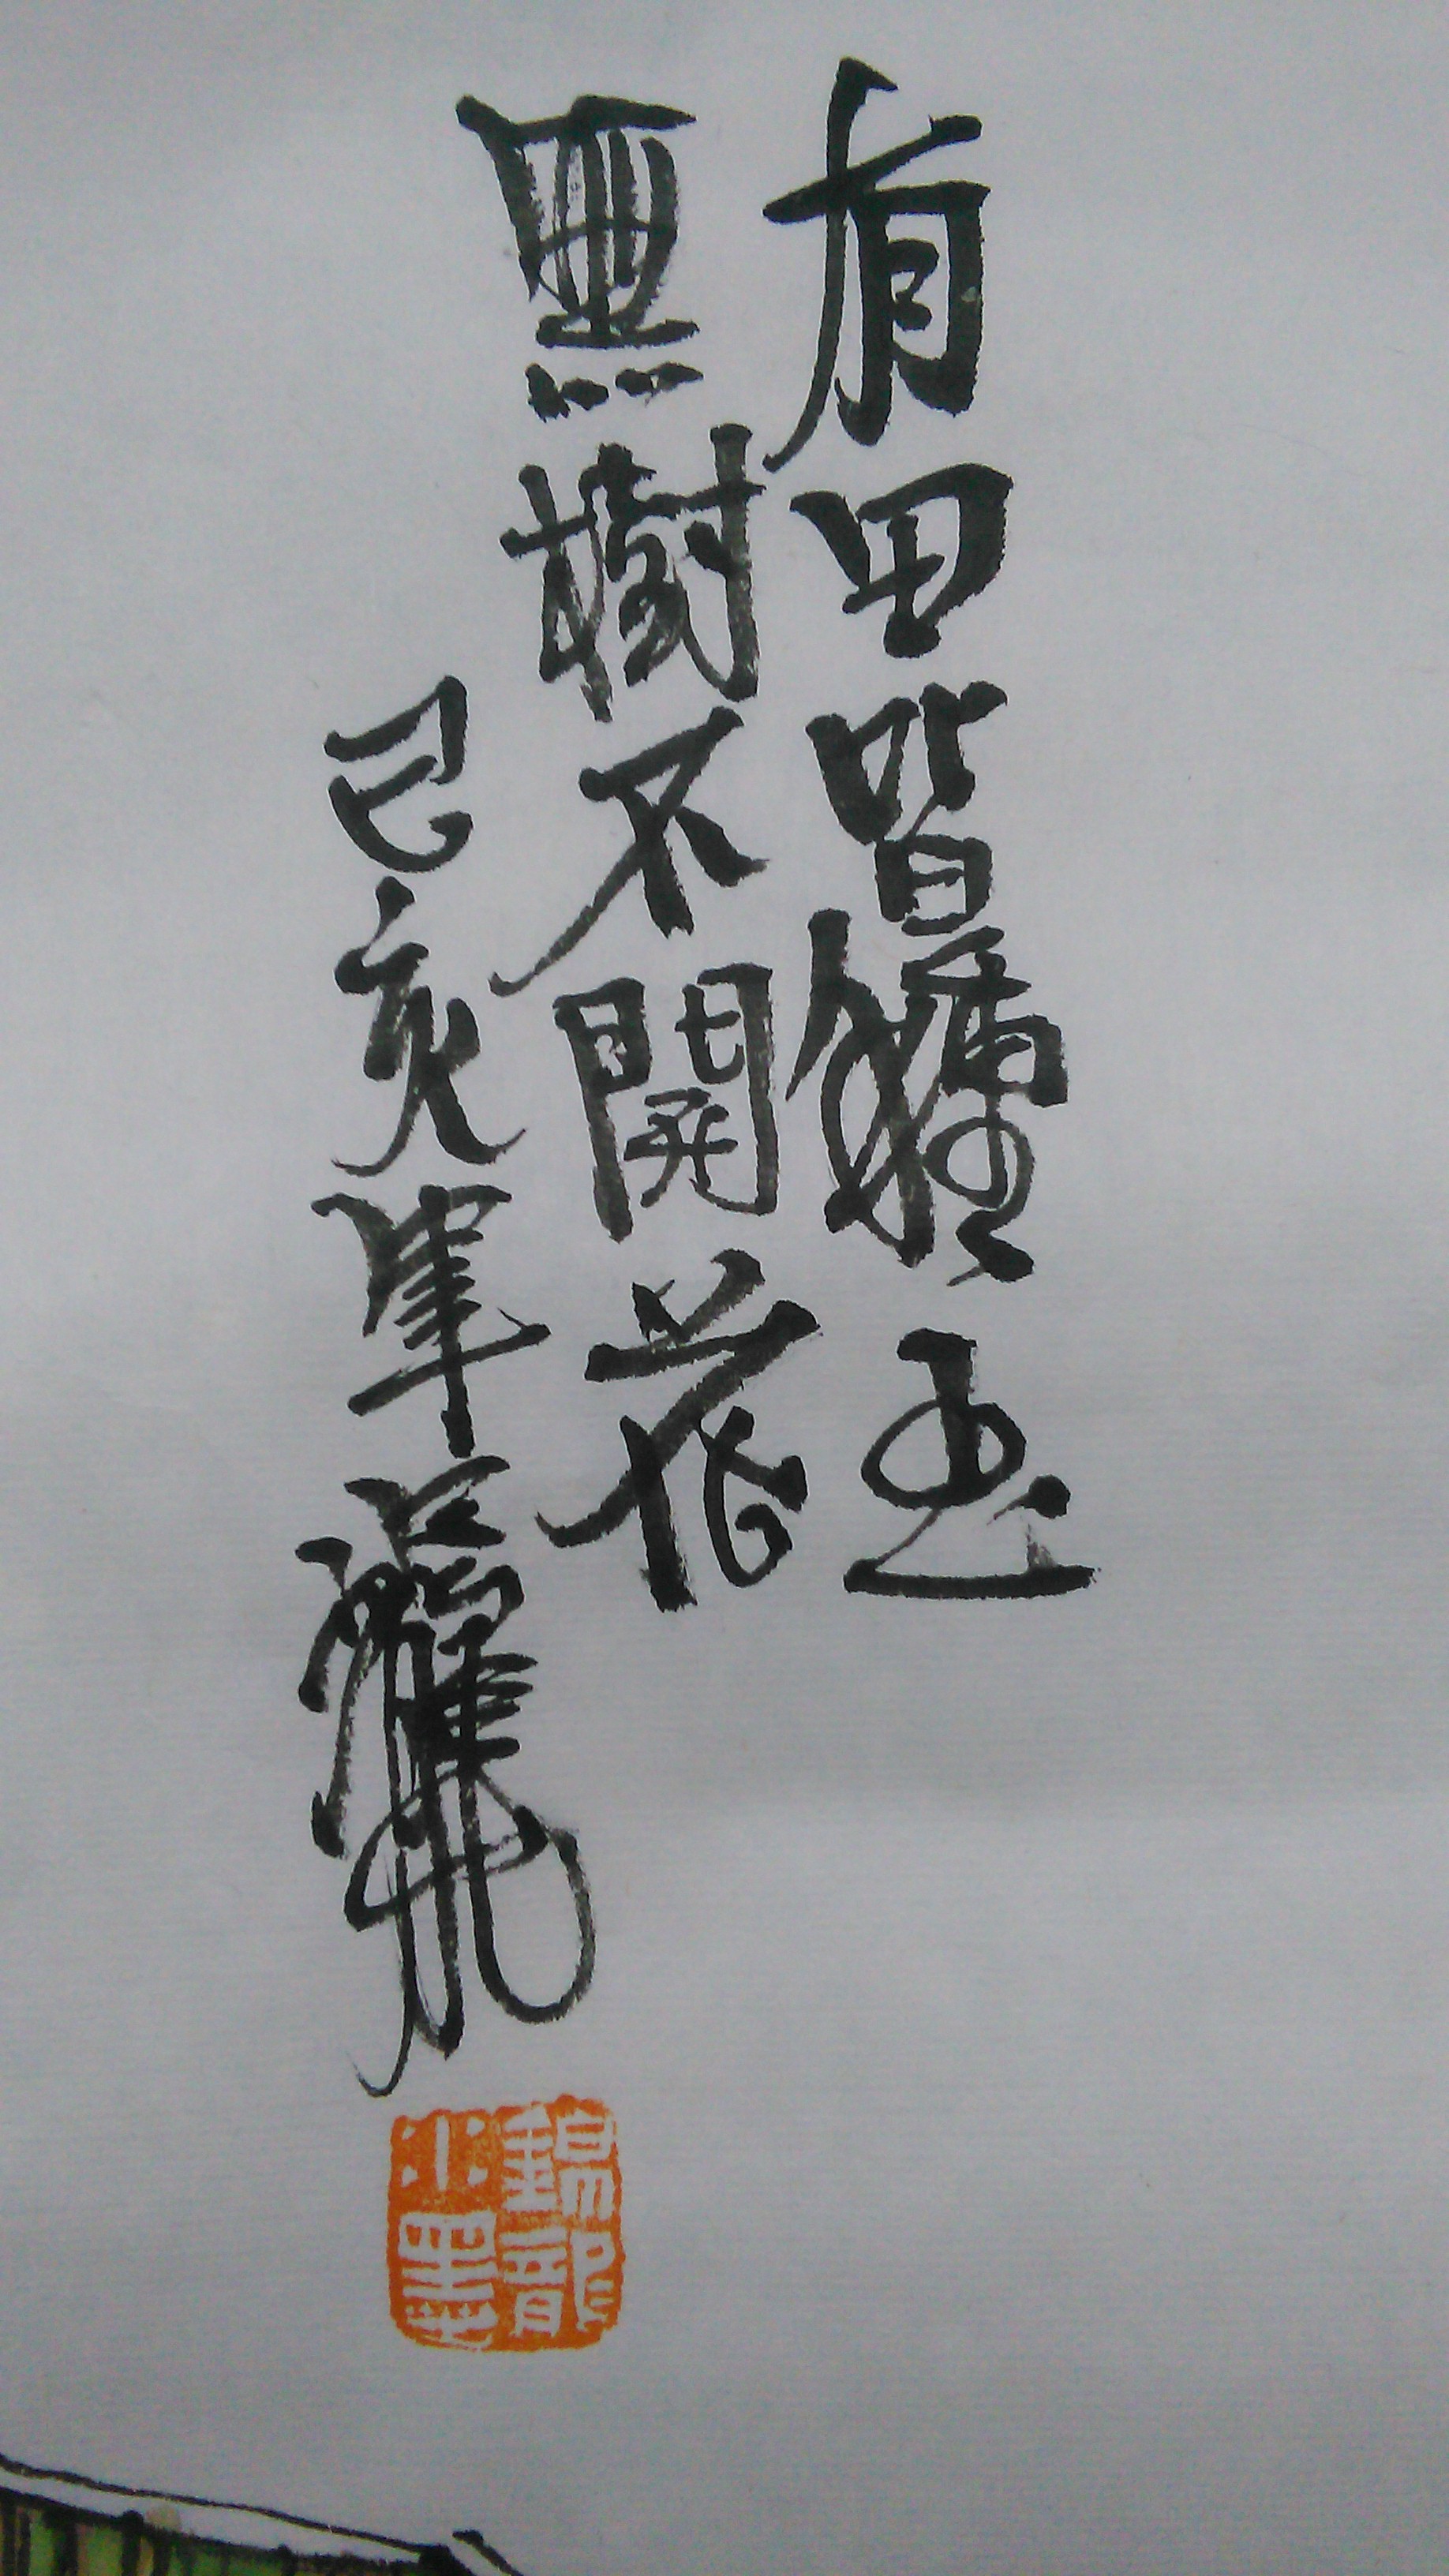 有田皆種玉
無樹不開花
己亥年
錦龍小墨